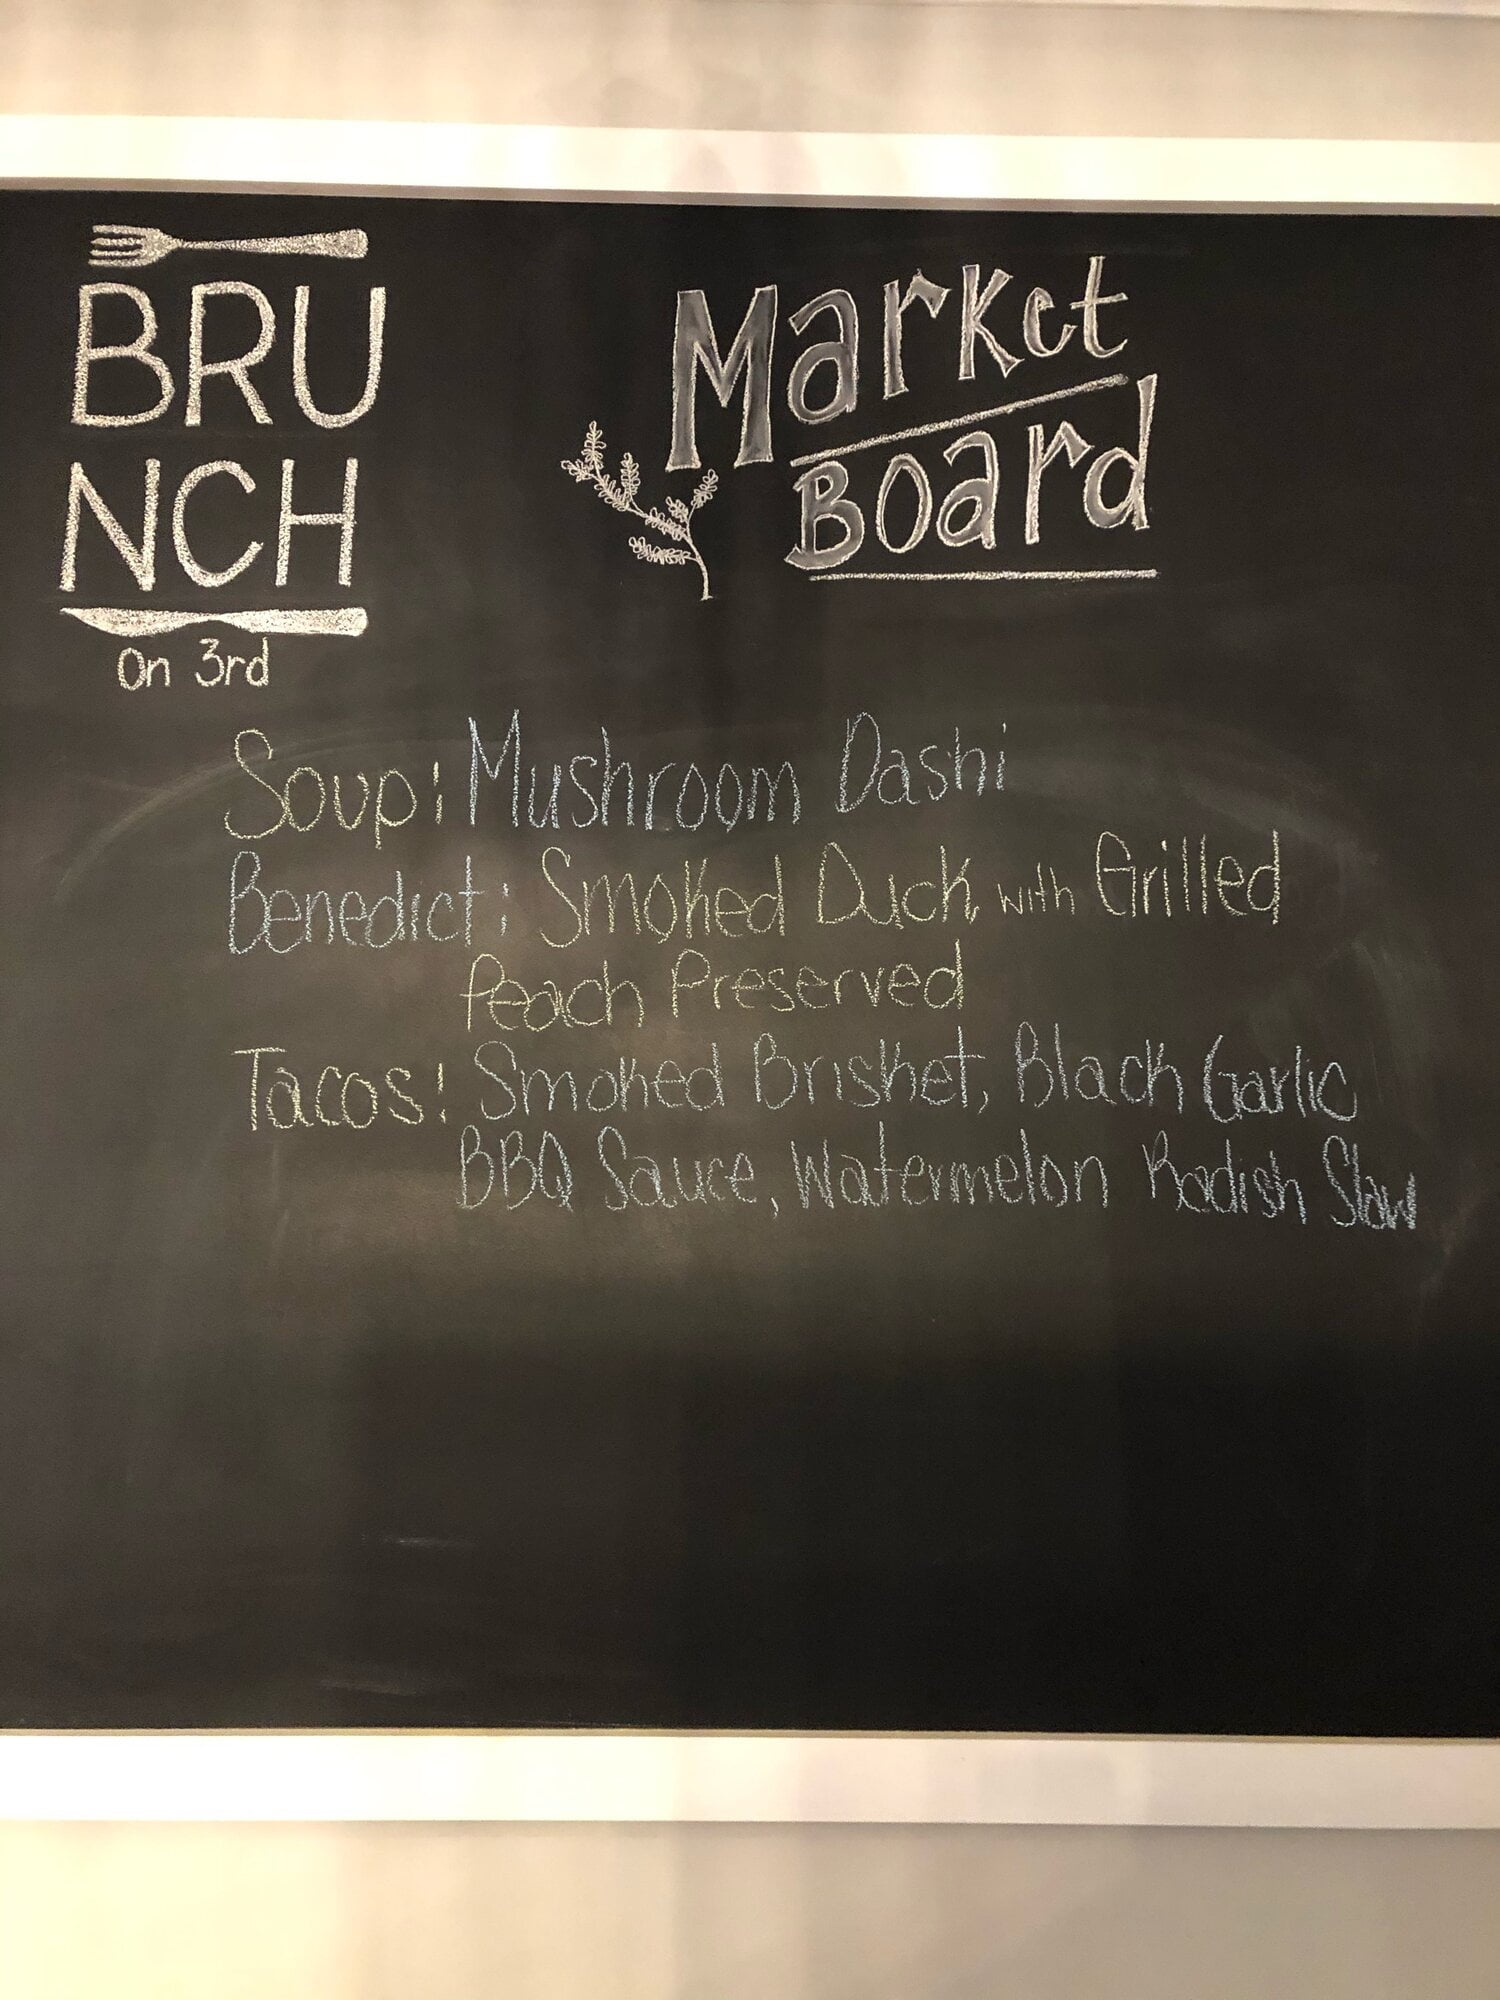 BRU
NCH
On 3rd
Market
Board
Soup: Mushroom Dashi
Benedict: Smoked Duck with Grilled
Peach Preserved
Tacos: Smoked Brisket, Black Garlic
BBQ Sauce, Watermelon Radish Slaw